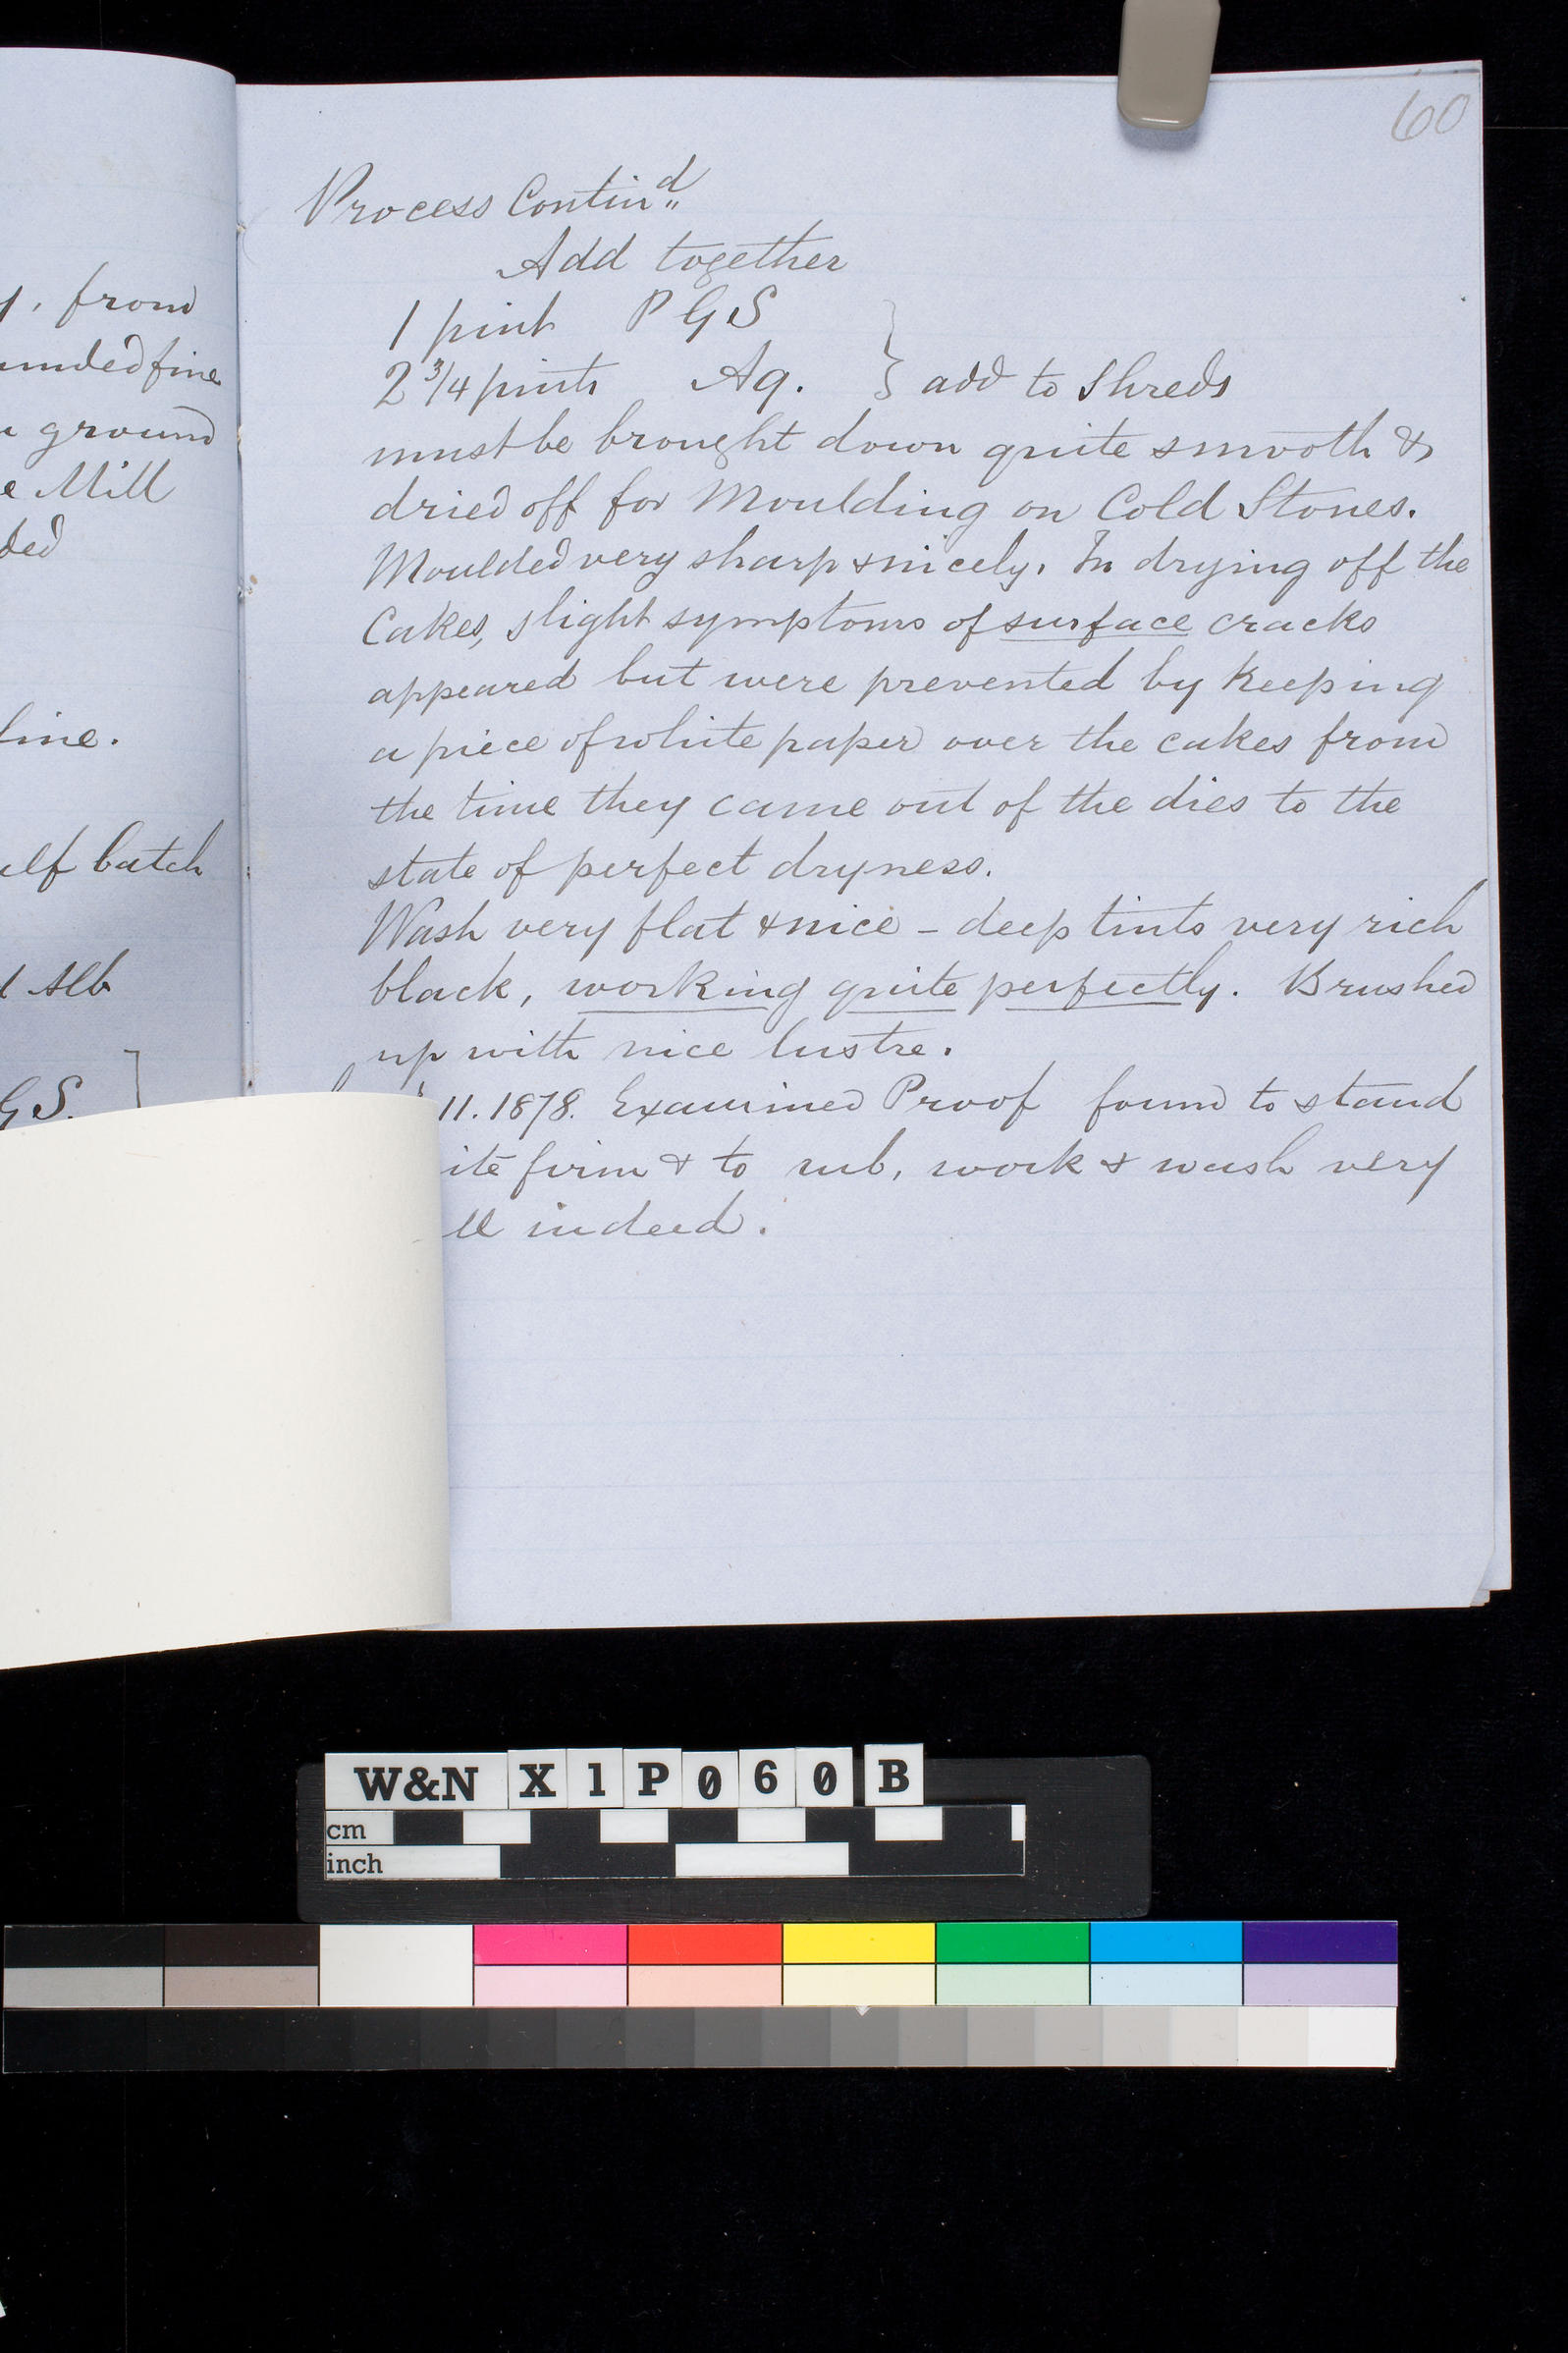 60
y, from
unded fine
ground
e Mill
ded
fine.
alf batch
d Alb
GS.
Process Contin.d
Add together
1 pint P G S
2 3/4 pints Aq. } add to Shreds
must be brought down quite smooth &
dried off for Moulding on Cold Stones.
Moulded very sharp & nicely. In drying off the
Cakes, slight symptoms of surface cracks
appeared but were prevented by keeping
a piece of white paper over the cakes from
the time they came out of the dies to the
state of perfect dryness.
Wash very flat & nice – deep tints very rich
black, working quite perfectly. Brushed
up with nice lustre.
11. 1878. Examined Proof found to stand
ite firm & to rub, work & wash very
ll indeed.
W&N X1P060B
cm
inch